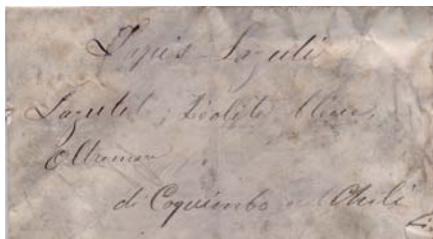 Lapis-Lazuli
Lazulite, Zéolite bleue,
Oltremare
di Coquimbo nel Chili